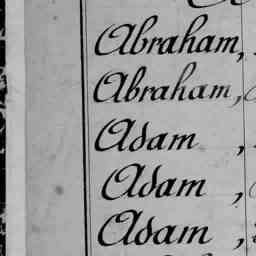 Abraham,
Abraham,
Adam ,
Adam ,
Adam ,